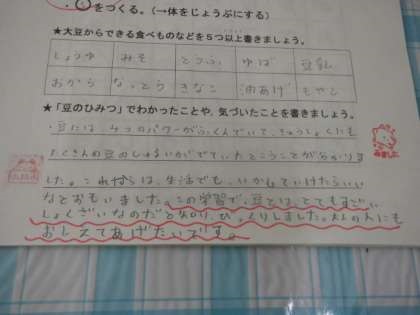 をつくる。(→体をじょうぶにする)
★大豆からできる食べものなどを5つ以上書きましょう。
しょうゆ みそ とうふ ゆば 豆乳
おから なっとう きなこ 油あげ もやし
★「豆のひみつ」でわかったことや、気づいたことを書きましょう。
・豆には、4つのパワーがふくんでいて、きゅうしょくにも
たくさんの豆のしゅるいがでていたということが分かりま
した。これからは、生活でも、いかしていけたらいい
なとおもいました。この学習で、豆とは、とてもすごい
しょくざいなのだと知り、びっくりしました。大人の人にも
おしえてあげたいです。
みました